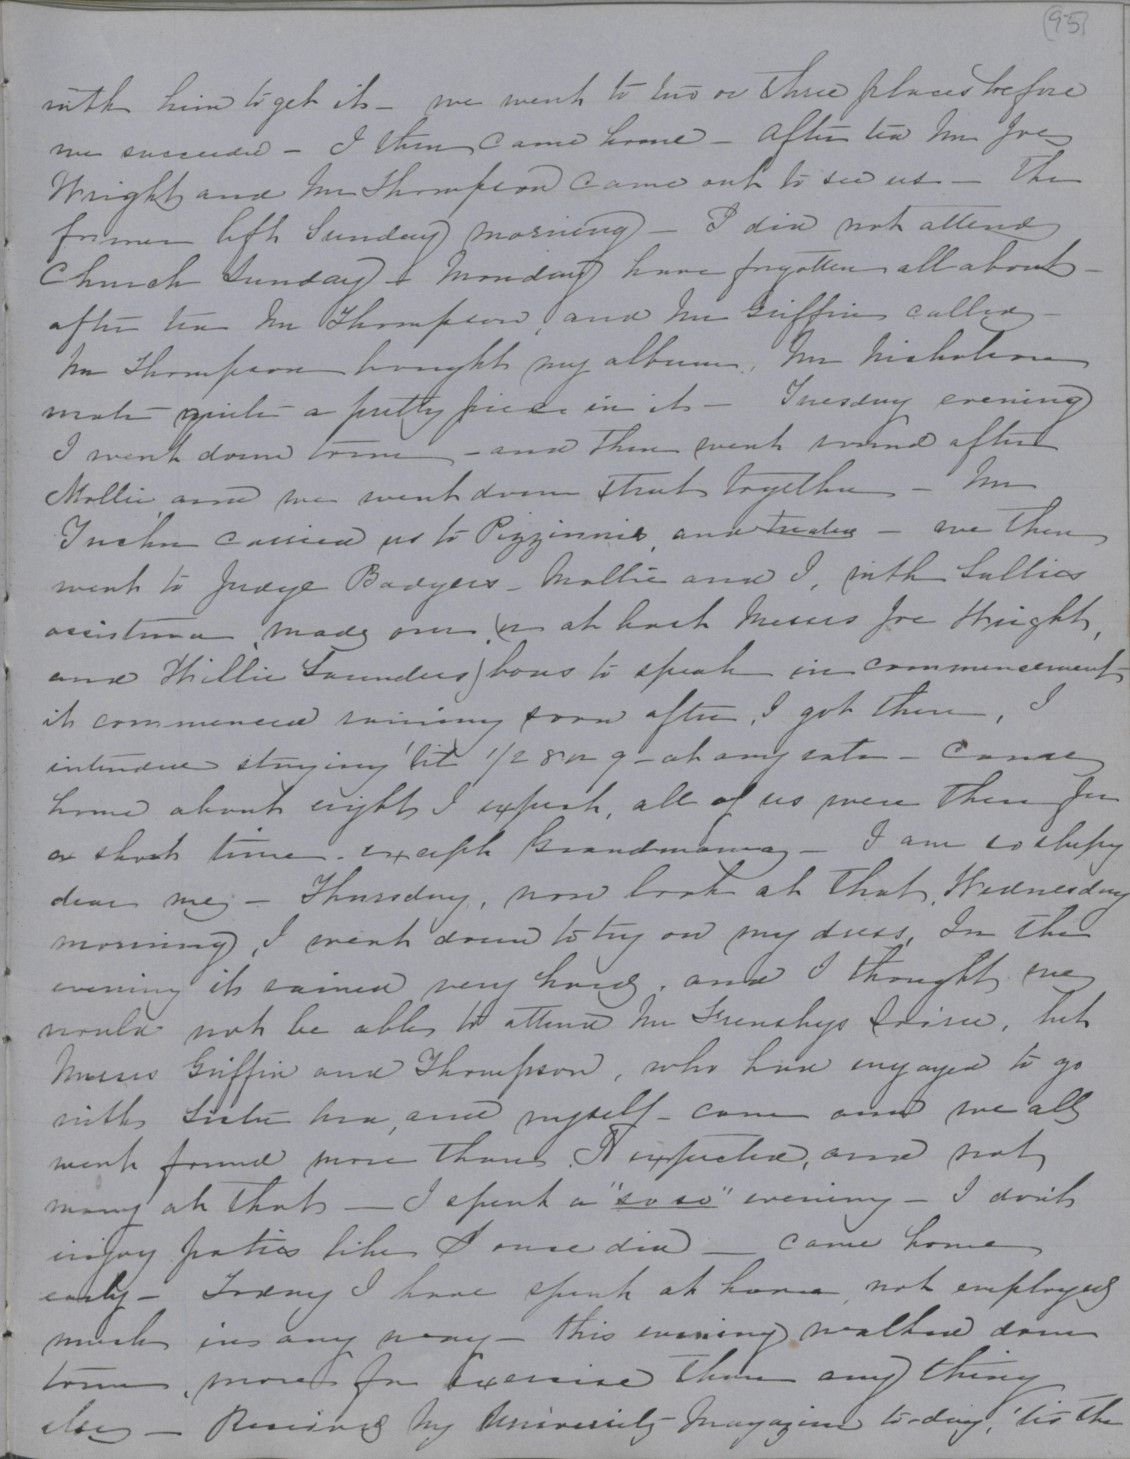 (95)
with him to get it – we went to two or three places before
we succeeded – I then came home – After tea Mr Joe
Wright and Mr Thompson came out to see us – The
former left Sunday morning – I did not attend
Church Sunday – Monday have forgotten all about –
after tea Mr Thompson, and Mr Griffin called –
Mr Thompson brought my album, Mr Nicholson
wrote quite a pretty piece in it – Tuesday evening
I went down town – and then went round after
Mollie, and we went down street together – Mr
Tucker carried us to Pizzinnis, and treated – we then
went to Judge Badgers – Mollie and I, with Sallies
assistance, made our, (or at least Messrs Joe Wright,
and Willie Saunders) bows to speak in commencement
it commenced raining soon after, I got there, I
intended staying 'till 1/2 8 or 9 – at any rate – came
home about eight I expect, all of us were there for
a short time – except Grandmama – I am so sleepy
dear me – Thursday, now look at that, Wednesday
morning, I went down to try on my dress, In the
evening it rained very hard, and I thought we
would not be able to attend Mr Frenskys Soiree, but
Messrs Griffin and Thompson, who had engaged to go
with Sister and myself – came and we all
went found more than I expected, and not
many at that – I spent a "so so" evening – I don't
enjoy parties like I once did – came home
early – Today I have spent at home, not employed
much in any way – this evening walked down
town, more for exercise than any thing
else – Received my University Magazine to-day, 'tis the